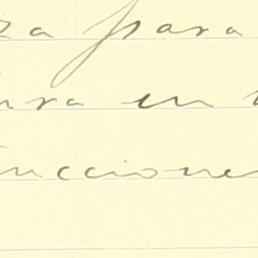 za para
ura en
ncciones